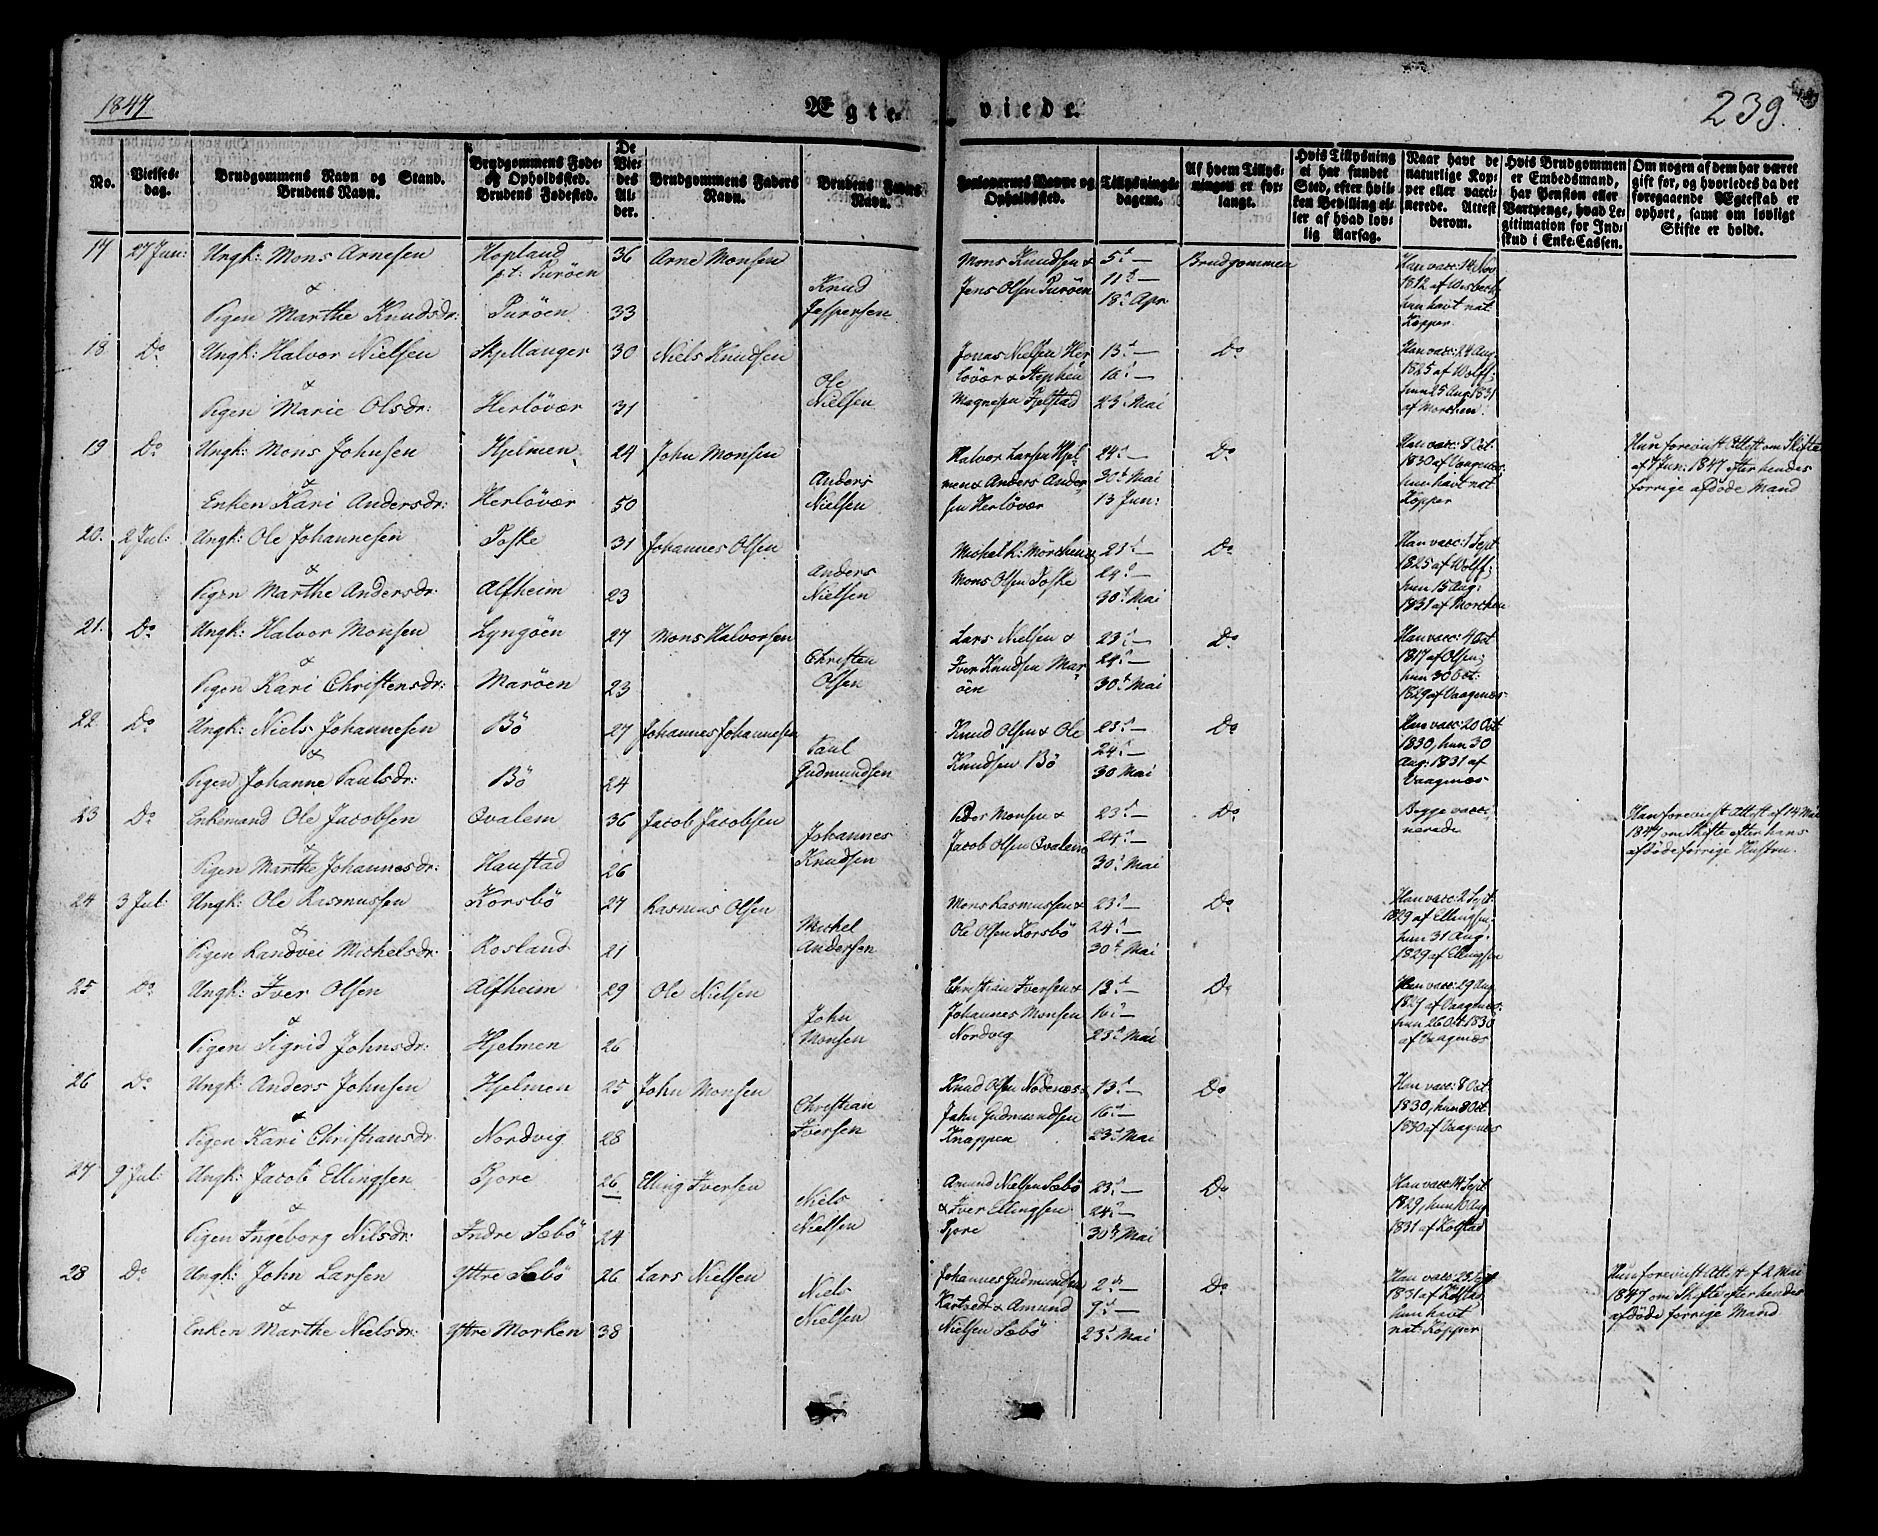 1847
Ægte-viede.
239.
No.
Vielses-dag.
Brudgommens Navn og Stand. Brudens Navn.
Brudgommens Føde- og Opholdssted. Brudens Fødested.
De Vie-des Al-der.
Brudgommens Faders Navn.
Brudens Faders Navn.
Forlovernes Navne og Opholdssted.
Tillysnings-dagene.
Af hvem Tillys-ningen er for-langt.
Hvis Tillysning ei har fundet Sted, efter hvil-ken Bevilling el-ler af hvad lov-lig Aarsag.
Naar havt de naturlige Kop-per eller vacci-nerede. Attest derom.
Hvis Brudgommen er Embedsmand, har Pension eller Vartpenge, hvad Le-gitimation for Ind-skud i Enke-Cassen.
Om nogen af dem har været gift før, og hvorledes da det foregaaende Ægtestad er ophørt, samt om lovligt Skifte er holdt.
17 27 Jun: Ungk: Mons Arnesen Hopland 36 Arne Monsen Mons Knudsen & 5t — Brudgommen Han vacc: 14 Nov
pt: Turöen Knud Jens Olsen Turöen 11t — 1812 af
& Jespersen 18t Apr hun havt nat
Pigen Marthe Knudsdr: Turöen 33 Kopper
18 Do Ungk: Halvor Nielsen Skjellanger 30 Niels Knudsen Jonas Nielsen Her 13t — Do Han vacc: 24 Aug
& Ole lövær & Stephen 16t — 1825 af Wolff;
Pigen Marie Olsdr: Herlövær 31 Nielsen Magnesen Fjelstad 23t Mai hun 25 Aug 1831
af Morchen
19 Do Ungk: Mons Johnsen Hjelmen 24 John Monsen Halvor Larsen Hjel 24t — Do Han vacc: 8 Oct Hun foreviist Attest om Skifte
& Anders men & Anders Ander 30t Mai 1830 af Vaagenæs: af 7 Jun: 1847 efter hendes
Enken Kari Andersdr: Herlövær 50 Nielsen sen Herlövær 13 Jun: hun havt nat forrige afdöde Mand
Kopper
20. 2 Jul: Ungk: Ole Johannesen Toske 31 Johannes Olsen Michel K: Mörchen & 23t — Do Han vacc: 1 Sept
& Anders Mons Olsen Toske 24t — 1825 af Wolff;
Pigen Marthe Andersdr: Alfheim 23 Nielsen 30t Mai hun 15 Aug:
1831 af Morchen
21. Do Ungk: Halvor Monsen Lyngöen 27 Mons Halvorsen Lars Nielsen & 23t — Do Han vacc: 4 Oct
& Christen Iver Knudsen Mar 24t — 1817 af Olsen;
Pigen Kari Christensdr: Maröen 23 Olsen öen 30t Mai hun 30 Oct:
1829 af Vaagenæs
22. Do Ungk: Niels Johannesen Bö 27 Johannes Johannesen Knud Olsen & Ole 23t — Do Han vacc: 20 Oct
& Paul Knudsen Bö 24t — 1830, hun 30
Pigen Johanne Paulsdr: Bö 24 Gudmundsen 30 Mai Aug: 1831 af
Vaagenæs
23 Do Enkemand Ole Jacobsen Qvalem 36 Jacob Jacobsen Peder Monsen & 23t — Do Begge vacci- Han foreviist Attest af 14 Mai
& Johannes Jacob Olsen Qvalem 24t — nerede 1847 om Skifte efter hans
Pigen Marthe Johannesdr: Haustad 26 Knudsen 30t Mai afdöde forrige Hustru.
24 3 Jul: Ungk: Ole Rasmussen Korsbö 27 Rasmus Olsen Mons Rasmussen & 23t — Do Han vacc: 2 Sept
& Michel Ole Olsen Korsbö 24t — 1829 af Ellingsen,
Pigen Randvei Michelsdr: Rosland 21 Andersen 30t Mai hun 31 Aug:
1829 af Ellingsen
25 Do Ungk: Iver Olsen Alfheim 29 Ole Nielsen Christian Iversen & 13t — Do Han vacc: 29 Aug
& John Johannes Monsen 16t — 1827 af Vaagenæs:
Pigen Sigrid Johnsdr: Hjelmen 26 Monsen Nordvig 23t Mai hun 26 Oct 1830
af Vaagenæs
26 Do Ungk: Anders Johnsen Hjelmen 25 John Monsen Knud Olsen Nödenæs & 13t — Do Han vacc: 8 Oct
& Christian John Gudmundsen 16t — 1830, hun 8 Oct
Pigen Kari Christiansdr: Nordvig 28 Iversen Knappen 23t Mai 1830 af Vaagenæs
27 9 Jul: Ungk: Jacob Ellingsen Tjore 26 Elling Iversen Amund Nielsen Sæbö 23t — Do Han vacc: 14 Sept
& Niels & Iver Ellingsen 24t — 1829, hun 10 Aug
Pigen Ingeborg Nilsdr: Indre Sæbö 24 Nielsen Tjore 30t Mai 1831 af Kolstad
28 Do Ungk: John Larsen Yttre Sæbö 26 Lars Nielsen Johannes Gudmundsen 2den — Do Han vacc: 23 Sept Hun foreviist Attest af 2 Mai
& Niels & Amund 9t — 1831 af Kolstad 1847 om Skifte efter hendes
Enken Marthe Nielsdr: Yttre Morken 38 Nielsen Nielsen Sæbö 23t Mai hun havt afdöde forrige Mand
nat: Kopper